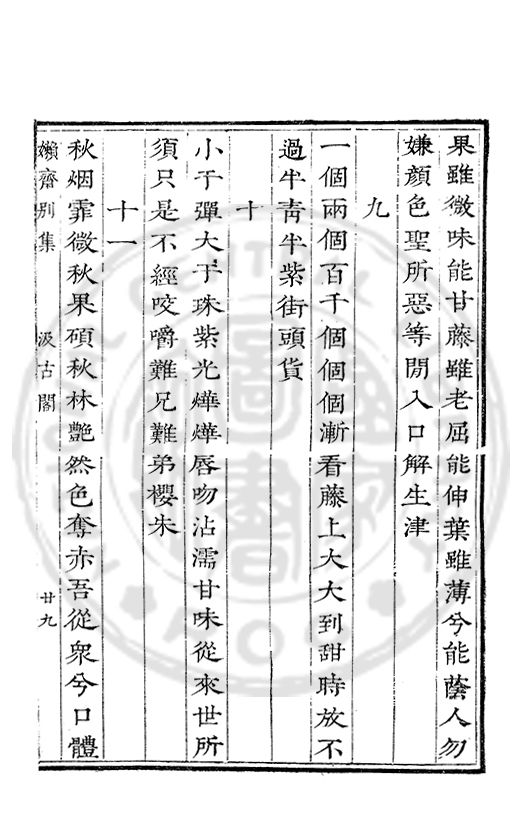 果雖微味能甘藤雖老屈能伸葉雖薄兮能蔭人勿
嫌顏色聖所惡等閒入口解生津
九
一個兩個百千個個個漸看藤上大大到甜時放不
過半靑半紫街頭貨
十
小于彈大于珠紫光燁燁唇吻沾濡甘味從來世所
須只是不經咬嚼難兄難弟櫻朱
十一
秋烟霏微秋果碩秋林艷然色奪赤吾從衆兮口體
嬾齋別集
汲古閣
廿九